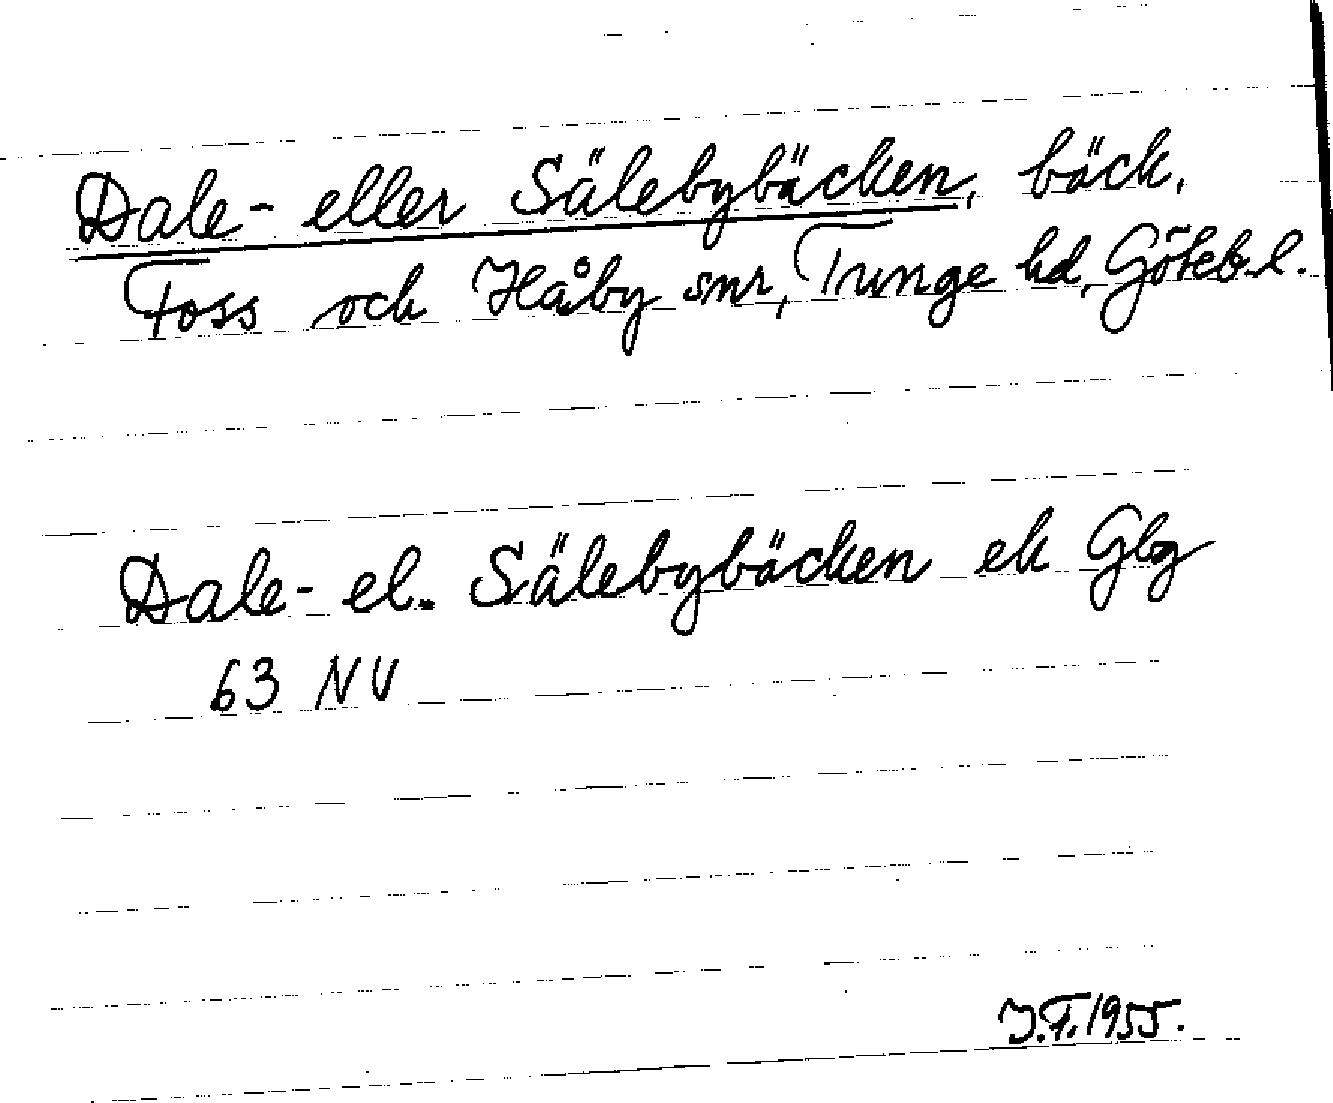 Dale- eller Sälebybäcken, bäck.
Foss och Håby snr, Tunge hd, Götebl.
Dale- el. Sälebybäcken ek Gbg
63 NV
J.F. 1955.